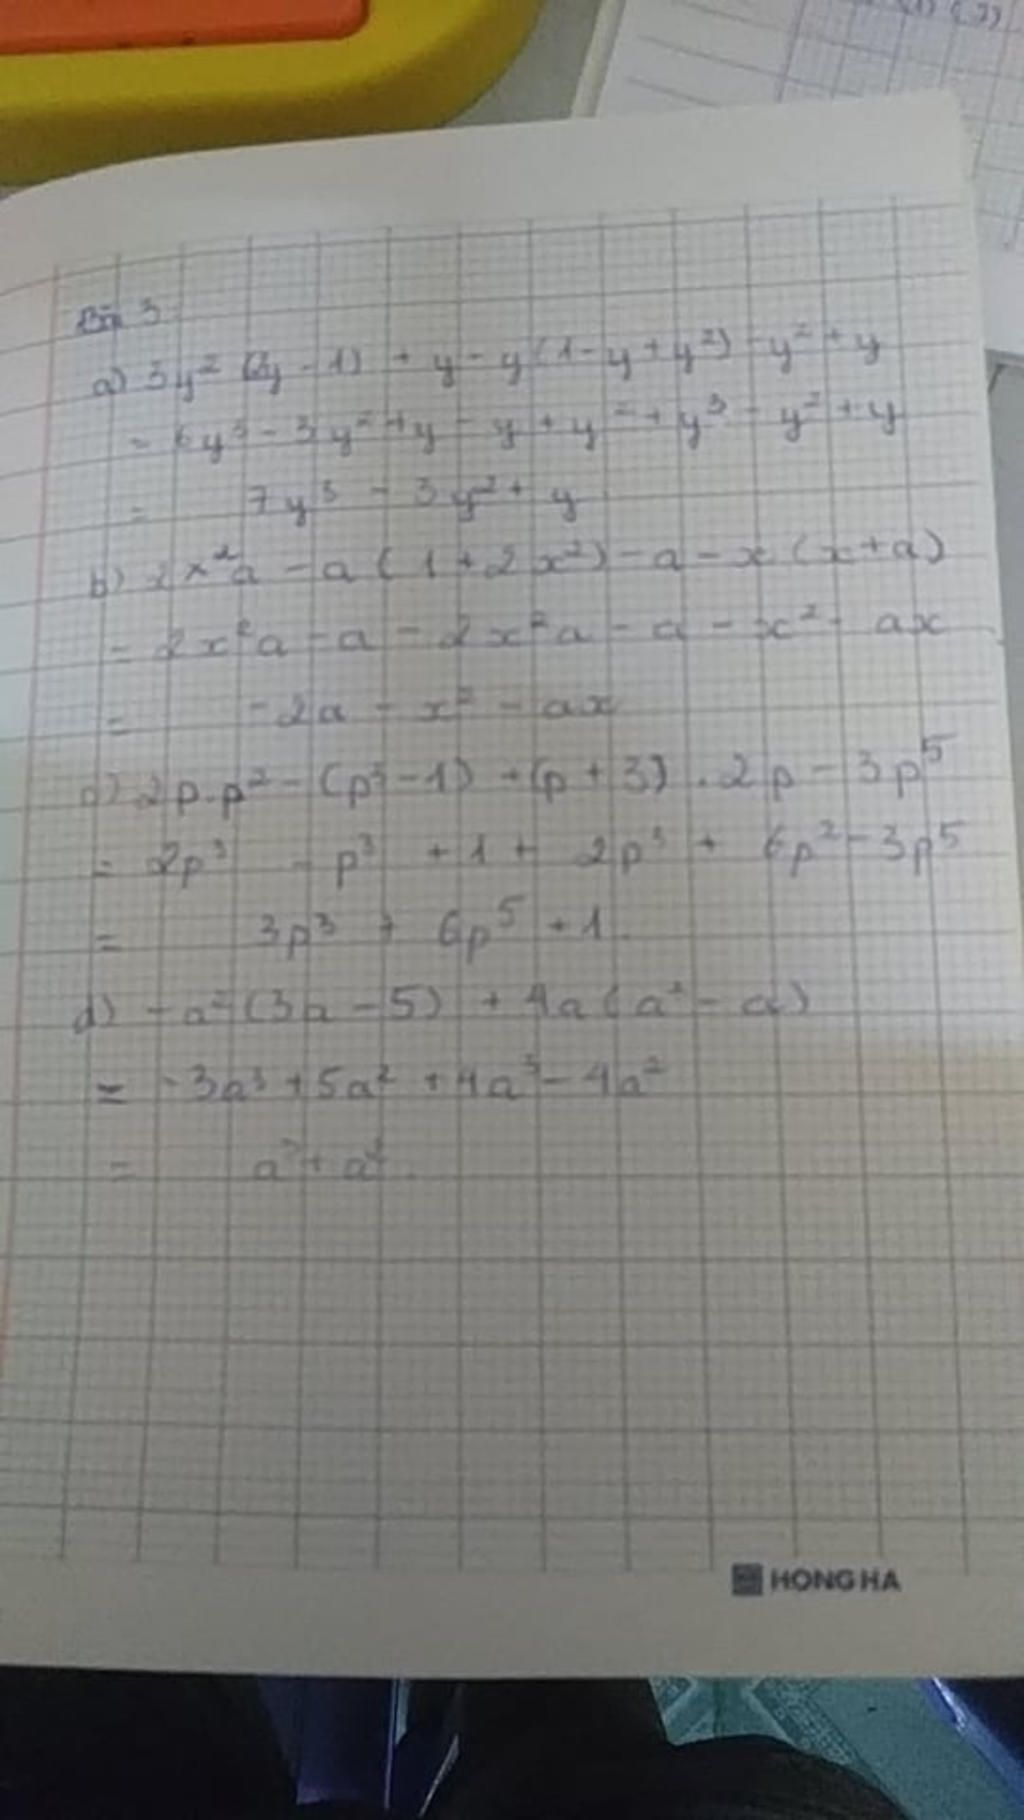 Bài 3
a) 3y² (2y - 1) + y - y (1 - y + y²) - y² + y
= 6y³ - 3y² + y - y + y² + y³ - y² + y
= 7y³ - 3y² + y
b) 2x²a - a (1 + 2x²) - a - x (x + a)
= 2x²a - a - 2x²a - a - x² - ax
= -2a - x² - ax
c) 2p.p² - (p³ - 1) + (p + 3) . 2p - 3p⁵
= 2p³ - p³ + 1 + 2p³ + 6p² - 3p⁵
= 3p³ + 6p⁵ + 1.
d) -a² (3a - 5) + 4a (a² - a)
= -3a³ + 5a² + 4a³ - 4a²
= a³ + a².
HONG HA